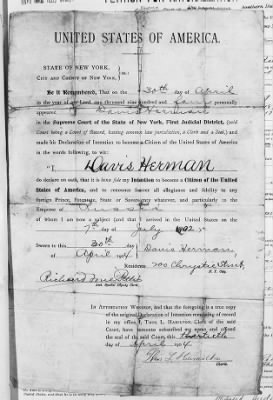 UNITED STATES OF AMERICA.
STATE OF NEW YORK,
CITY AND COUNTY OF NEW YORK, } ss.:
Be it Remembered, That on the 30th day of April
in the year of our Lord, one thousand nine hundred and four personally
appeared Davis Herman
in the Supreme Court of the State of New York, First Judicial District, (said
Court being a Court of Record, having common law jurisdiction, a Clerk and a Seal,) and
made his Declaration of Intention to become a Citizen of the United States of America
in the words following, to wit:
"I Davis Herman
do declare on oath, that it is bona fide my Intention to become a Citizen of the United
States of America, and to renounce forever all allegiance and fidelity to any
foreign Prince, Potentate, State or Sovereignty whatever, and particularly to the
Emperor of Russia
of whom I am now a subject (and that I arrived in the United States on the
7th day of July 1902
Sworn to this 30th day } Davis Herman
of April 1904 Residence 200 Chrystie Street,
N. Y. City.
and Special Deputy Clerk.
IN ATTESTATION WHEREOF, and that the foregoing is a true copy
of the original Declaration of Intention remaining of record
in my office, I, THOS. L. HAMILTON, Clerk of the said
Court, have hereunto subscribed my name and affixed
the seal of the said Court, this thirtieth
day of April 1904
Thos L Hamilton
Clerk.